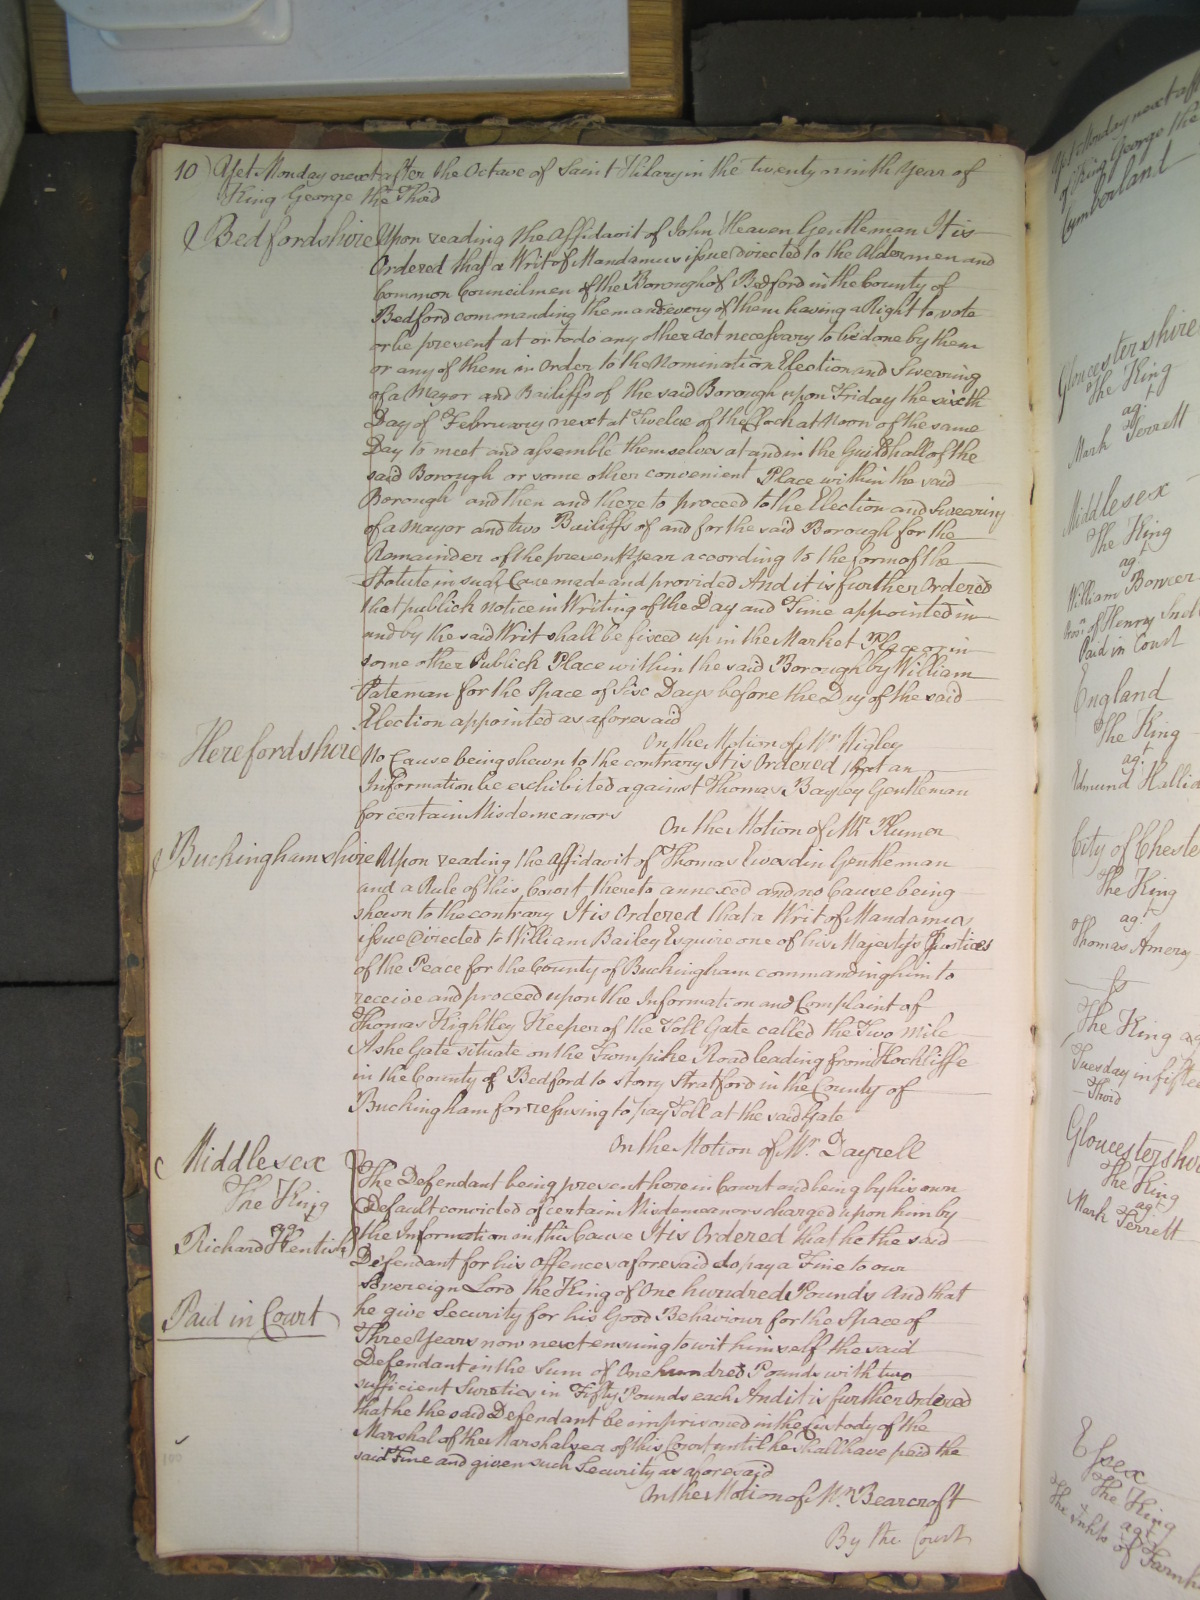 10) Yet Monday next after the Octave of Saint Hilary in the twenty ninth Year of
King George the Third
Bedfordshire Upon reading the Affidavit of John Heaven Gentleman It is
Ordered that a Writ of Mandamus issue directed to the Aldermen and
Common Councilmen of the Borough of Bedford in the County of
Bedford commanding them and every of them having a Right to vote
or be present at or to do any other act necessary to be done by them
or any of them in Order to the Nomination Election and Swearing
of a Mayor and Bailiffs of the said Borough upon Friday the sixth
Day of February next at Twelve of the Clock at Noon of the same
Day to meet and assemble themselves at and in the Guildhall of the
said Borough or some other convenient Place within the said
Borough and then and there to proceed to the Election and Swearing
of a Mayor and two Bailiffs of and for the said Borough for the
Remainder of the present Year according to the form of the
Statute in such Case made and provided And it is further Ordered
that publick notice in Writing of the Day and Time appointed in
and by the said Writ shall be fixed up in the Market Place or in
some other Publick Place within the said Borough by William
Pateman for the Space of Six Days before the Day of the said
Election appointed as aforesaid
On the Motion of Mr. Nigley
Herefordshire No Cause being shewn to the contrary It is Ordered that an
Information be exhibited against Thomas Bayley Gentleman
for certain Misdemeanors
On the Motion of Mr. Plumer
Buckinghamshire Upon reading the Affidavit of Thomas Ewesdin Gentleman
and a Rule of this Court thereto annexed and no Cause being
shewn to the contrary It is Ordered that a Writ of Mandamus
issue Directed to William Bailey Esquire one of his Majesty's Justices
of the Peace for the County of Buckingham commanding him to
receive and proceed upon the Information and Complaint of
Thomas Kightley Keeper of the Toll Gate called the Two Mile
Ashe Gate situate on the Turnpike Road leading from Hockliffe
in the County of Bedford to Stony Stratford in the County of
Buckingham for refusing to pay Toll at the said Gate
On the Motion of Mr. Dayrell
Middlesex The Defendant being present here in Court and being by his own
The King Default convicted of certain Misdemeanors charged upon him by
agt
Richard Hentish the Information in this Cause It is Ordered that he the said
Defendant for his Offences aforesaid do pay a Fine to our
Sovereign Lord the King of One hundred Pounds And that
Paid in Court he give Security for his Good Behaviour for the Space of
Three Years now next ensuing to wit himself the said
Defendant in the Sum of One hundred Pounds with two
sufficient Sureties in Fifty Pounds each And it is further Ordered
that he the said Defendant be imprisoned in the Custody of the
Marshal of the Marshalsea of this Court until he shall have paid the
said Fine and given such Security as aforesaid
On the Motion of Mr. Bearcroft
By the Court
Cumberland
Gloucestershire
The King
agt
Mark Terrett
Middlesex
The King
agt
William Bowcer
of Henry
Paid in Court
England
The King
agt
Edmund
City of Cheste
The King
agt
Thomas Amery
The King
Tuesday in fiftee
Third
Gloucestershire
The King
agt
Mark Terrett
Essex
The King
agt
The Inhts of Farnh